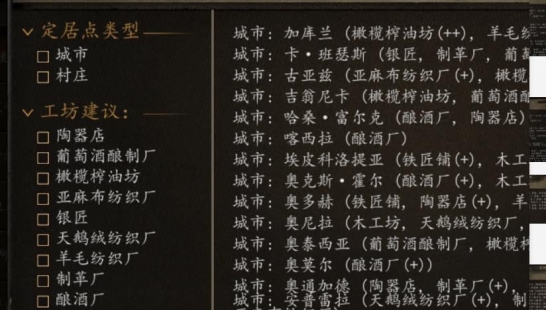 定居点类型
城市
村庄
工坊建议：
陶器店
葡萄酒酿制厂
橄榄榨油坊
亚麻布纺织厂
银匠
天鹅绒纺织厂
羊毛纺织厂
制革厂
酿酒厂
城市：加库兰（橄榄榨油坊(++)，羊毛纺
城市：卡·班瑟斯（银匠，制革厂，葡萄
城市：古亚兹（亚麻布纺织厂(+)，橄榄
城市：吉翁尼卡（橄榄榨油坊，葡萄酒酿
城市：哈桑·富尔克（酿酒厂，陶器店）
城市：喀西拉（酿酒厂）
城市：埃皮科洛提亚（铁匠铺(+)，木工
城市：奥克斯·霍尔（酿酒厂(+)，木工
城市：奥多赫（铁匠铺，陶器店(+)，羊
城市：奥尼拉（木工坊，天鹅绒纺织厂，
城市：奥泰西亚（葡萄酒酿制厂，橄榄榨
城市：奥莫尔（酿酒厂(+)）
城市：奥通加德（陶器店，制革厂(+)，
城市：安普雷拉（天鹅绒纺织厂(+)，制